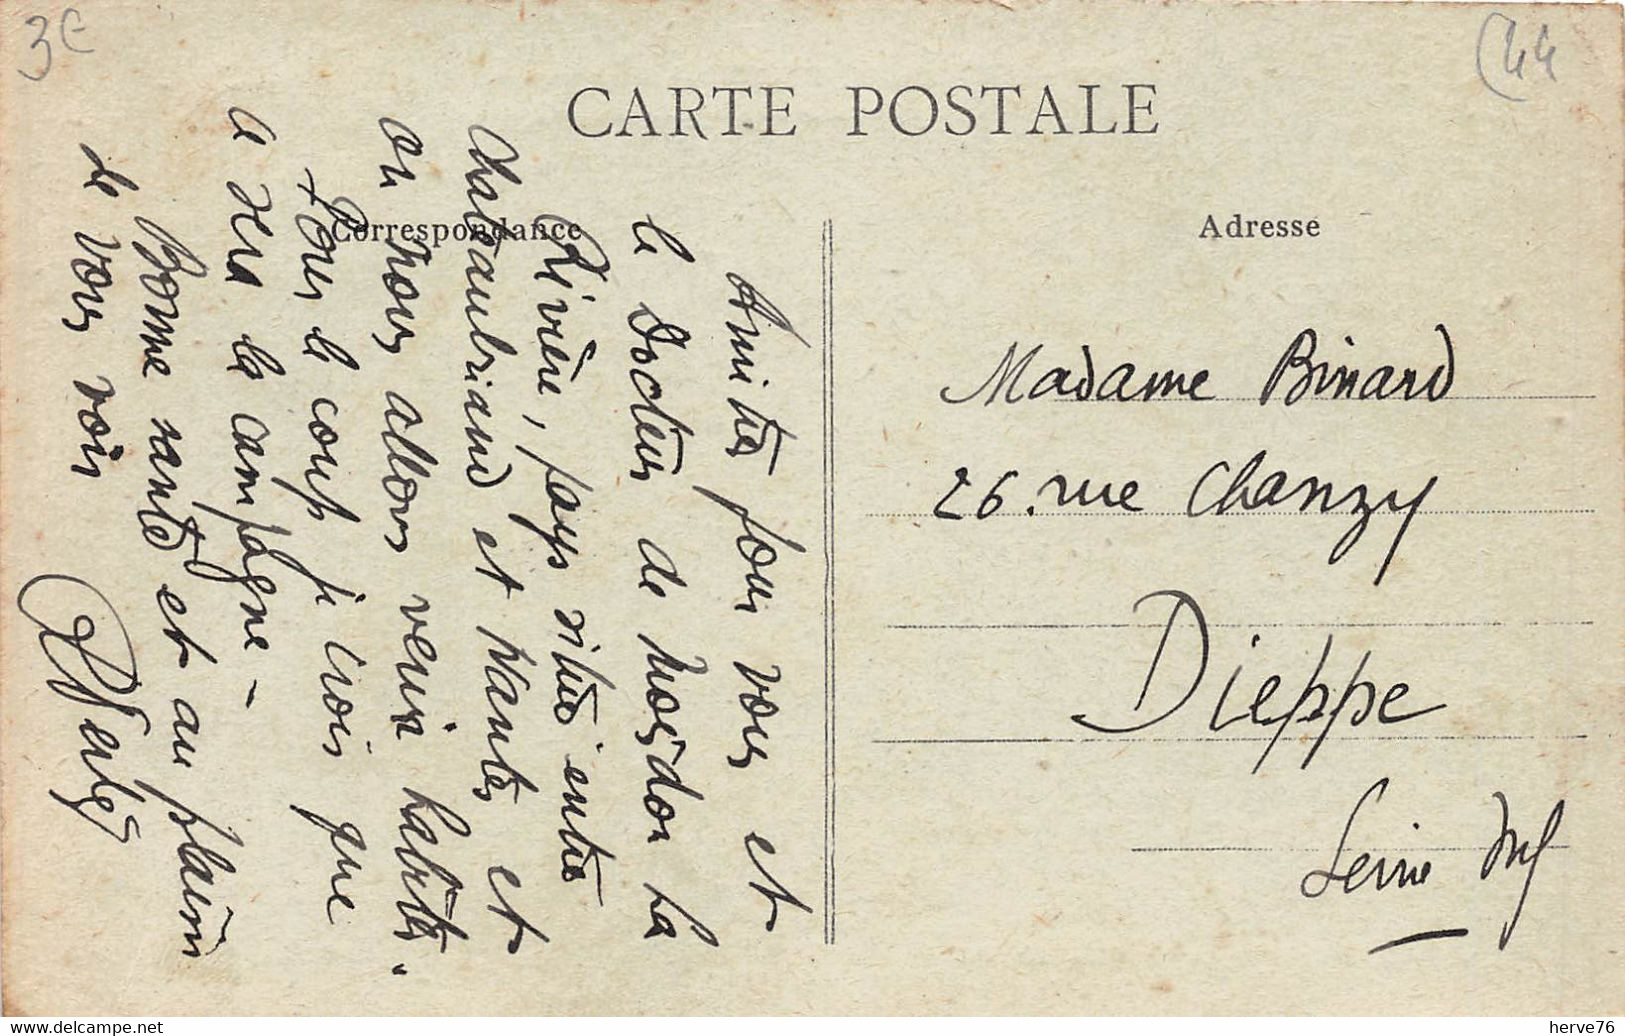 3€
(44
CARTE POSTALE
Correspondance
Adresse
Amitiés pour vous et
le Docteur de Moisdon La
Rivière, pays situé entre
Chateaubriand et Nantes et
ou nous allons venir habiter.
Pour le coup je crois que
ce sera la campagne -
Bonne santé et au plaisir
de vous voir
Madame Binard
26. rue Chanzy
Dieppe
Seine Inf
www.delcampe.net
herve76